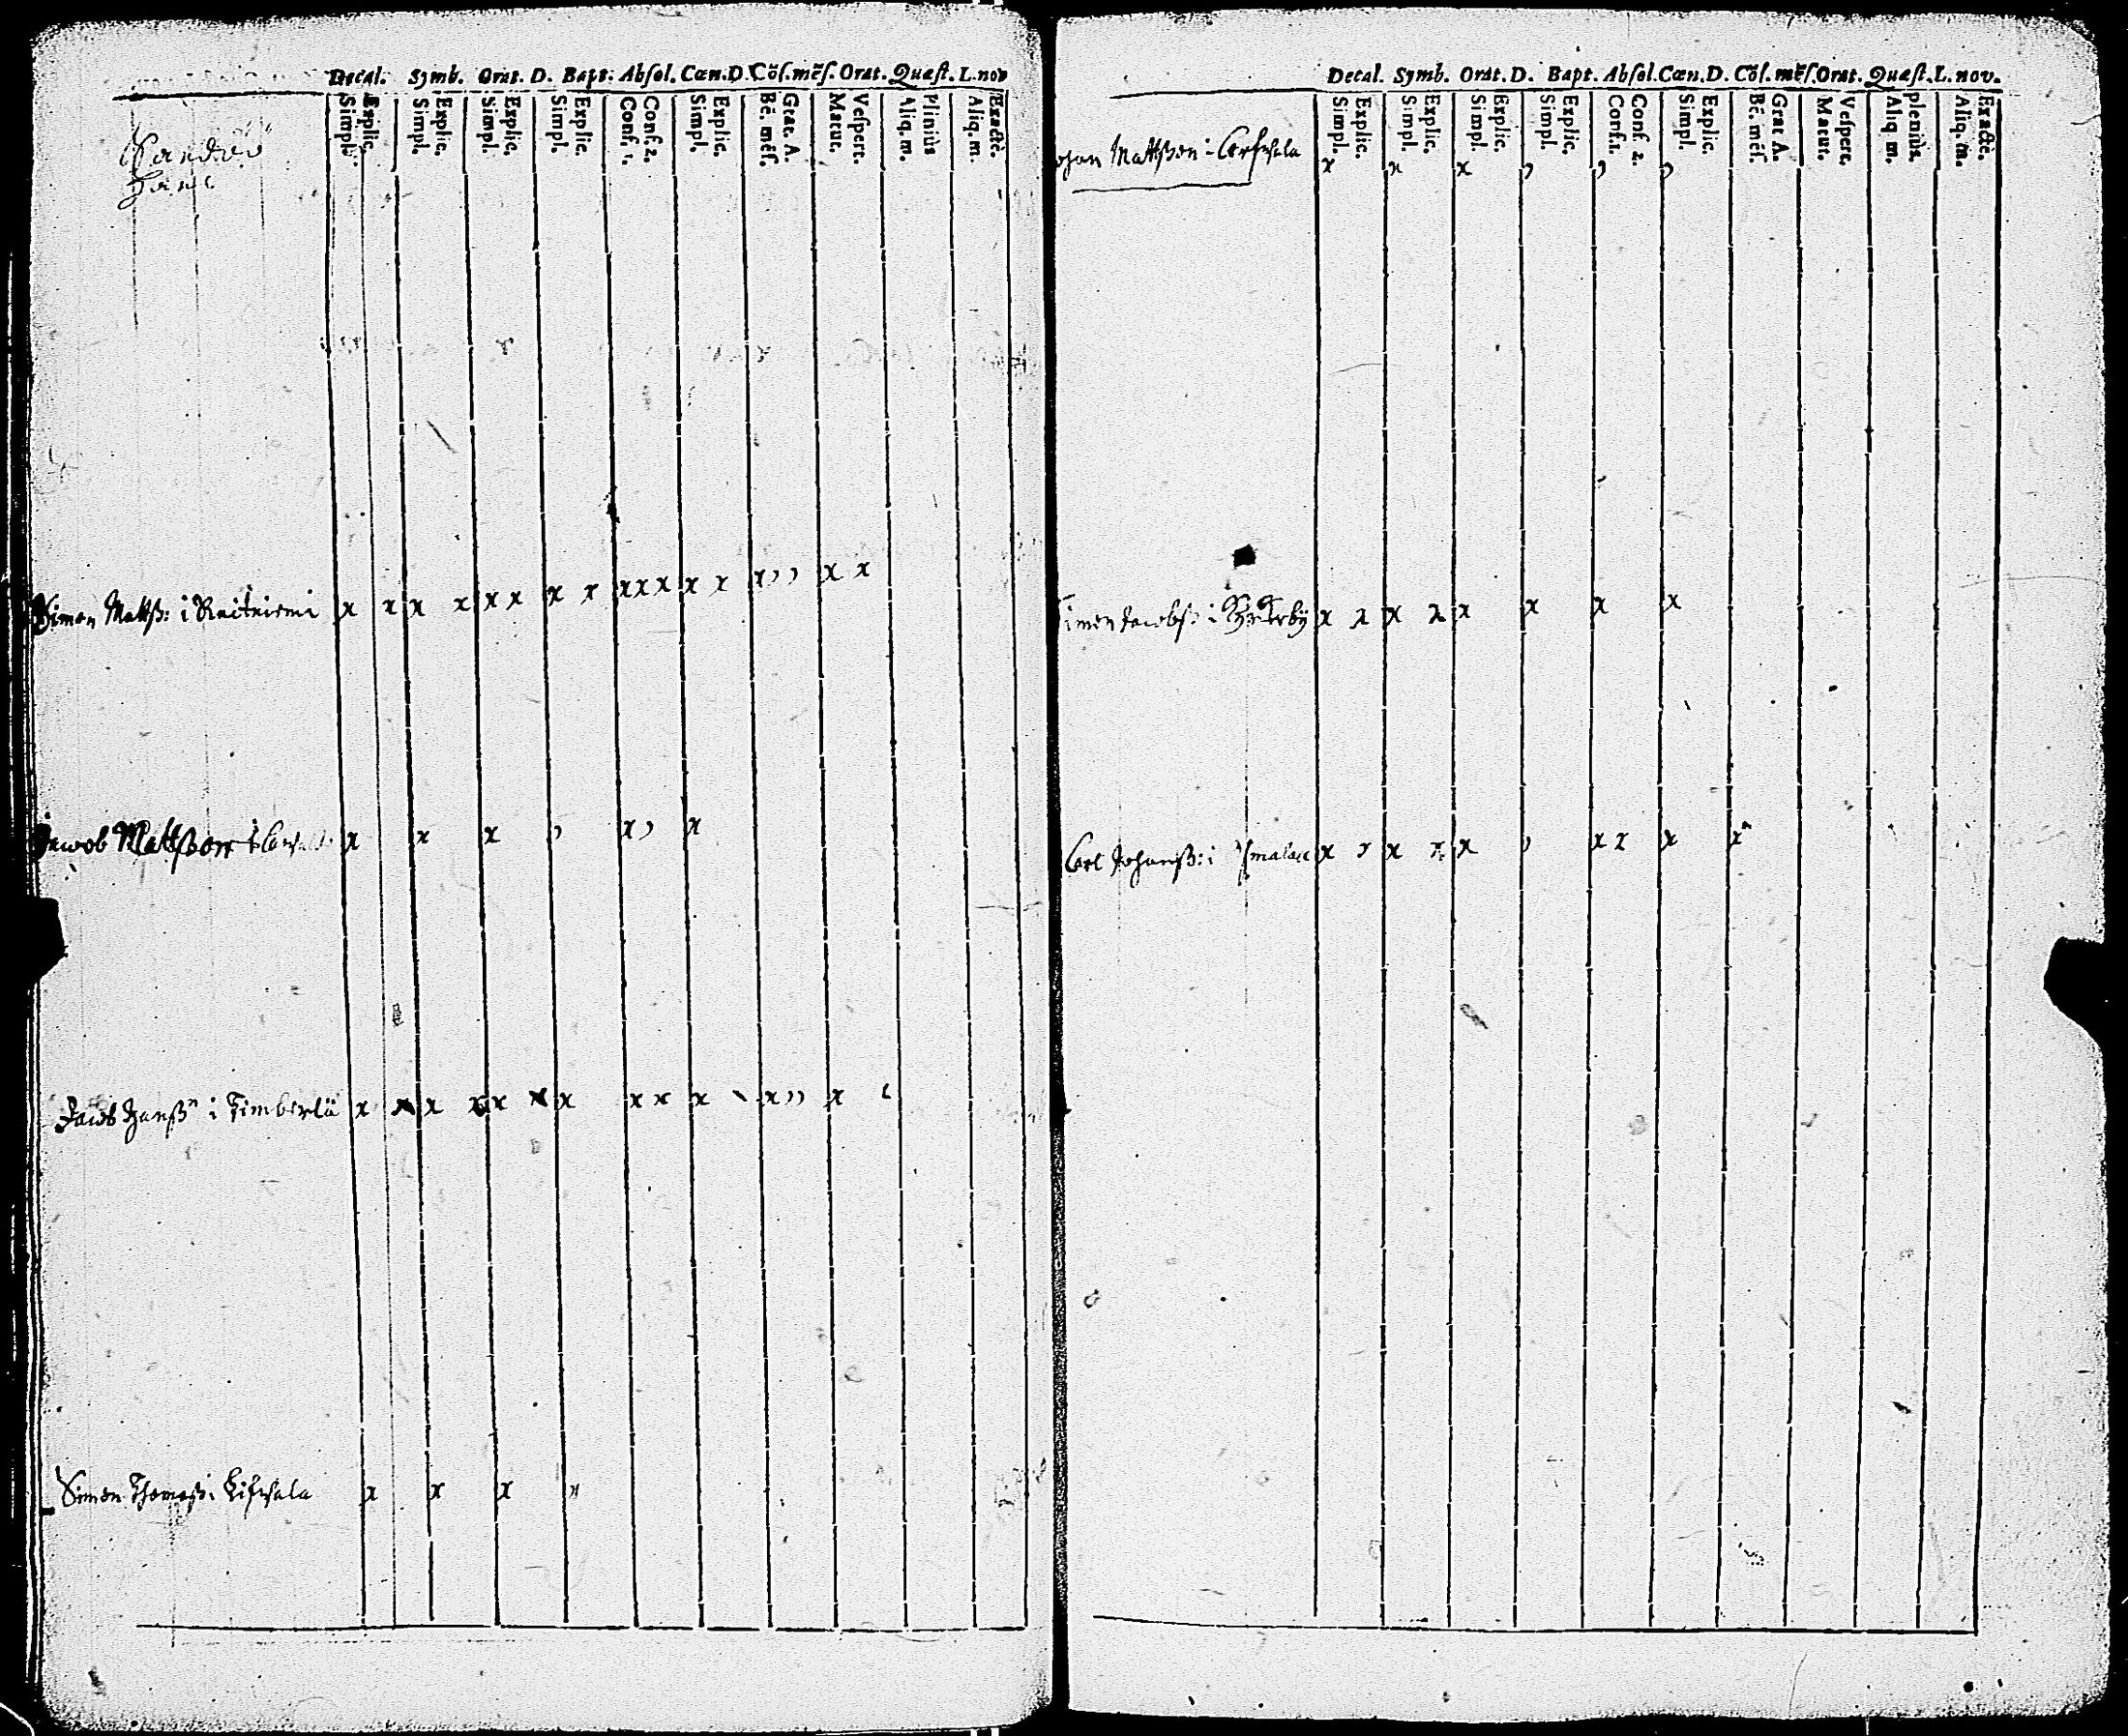 Decal. Symb. Orat. D. Bapt. Absol. Cœn. D. Cōs. mēs. Orat. Quæst. L. nov
Explic. Simpl. Explic. Simpl. Explic. Simpl. Explic. Simpl. Conf. 2. Conf. 1. Explic. Simpl. Grat. A. Bē. mēs. Vespert. Matut. Pleniùs Aliq. m. Exactè. Aliq. m.
Simon Mattß: i
x x x x x x x x x x x x x x , , x x
Jacob Mattßon i
x x x , x , x
Jacob Hanß i Timberlä
x x x x x x x x x x x , , x
Simon Thomaß i
x x x
Decal. Symb. Orat. D. Bapt. Absol. Cœn. D. Cōs. mēs. Orat. Quæst. L. nov.
Explic. Simpl. Explic. Simpl. Explic. Simpl. Explic. Simpl. Conf. 2. Conf. 1. Explic. Simpl. Grat A. Bē. mēs. Vespert. Matut. pleniùs. Aliq m. Exactè. Aliq. m.
ohan Mattßon i
x x x , , ,
imon Jacobß: i
x x x x x x x x
Carl Johanß: i
x , x x x , x x x x